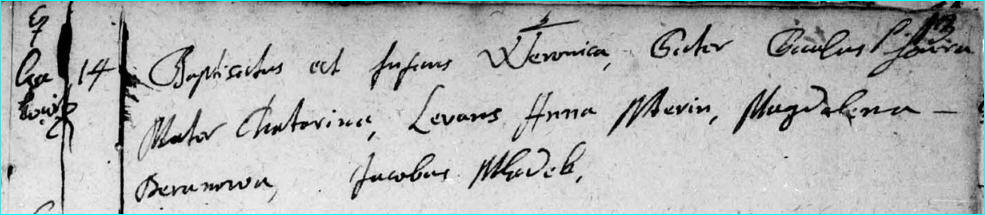 14 Baptisatus est Infans Weronica, Pater Paulus
Mater Chatarina, Levans Anna Merin, Magdalena –
Beranowa, Jacobus Mladek.